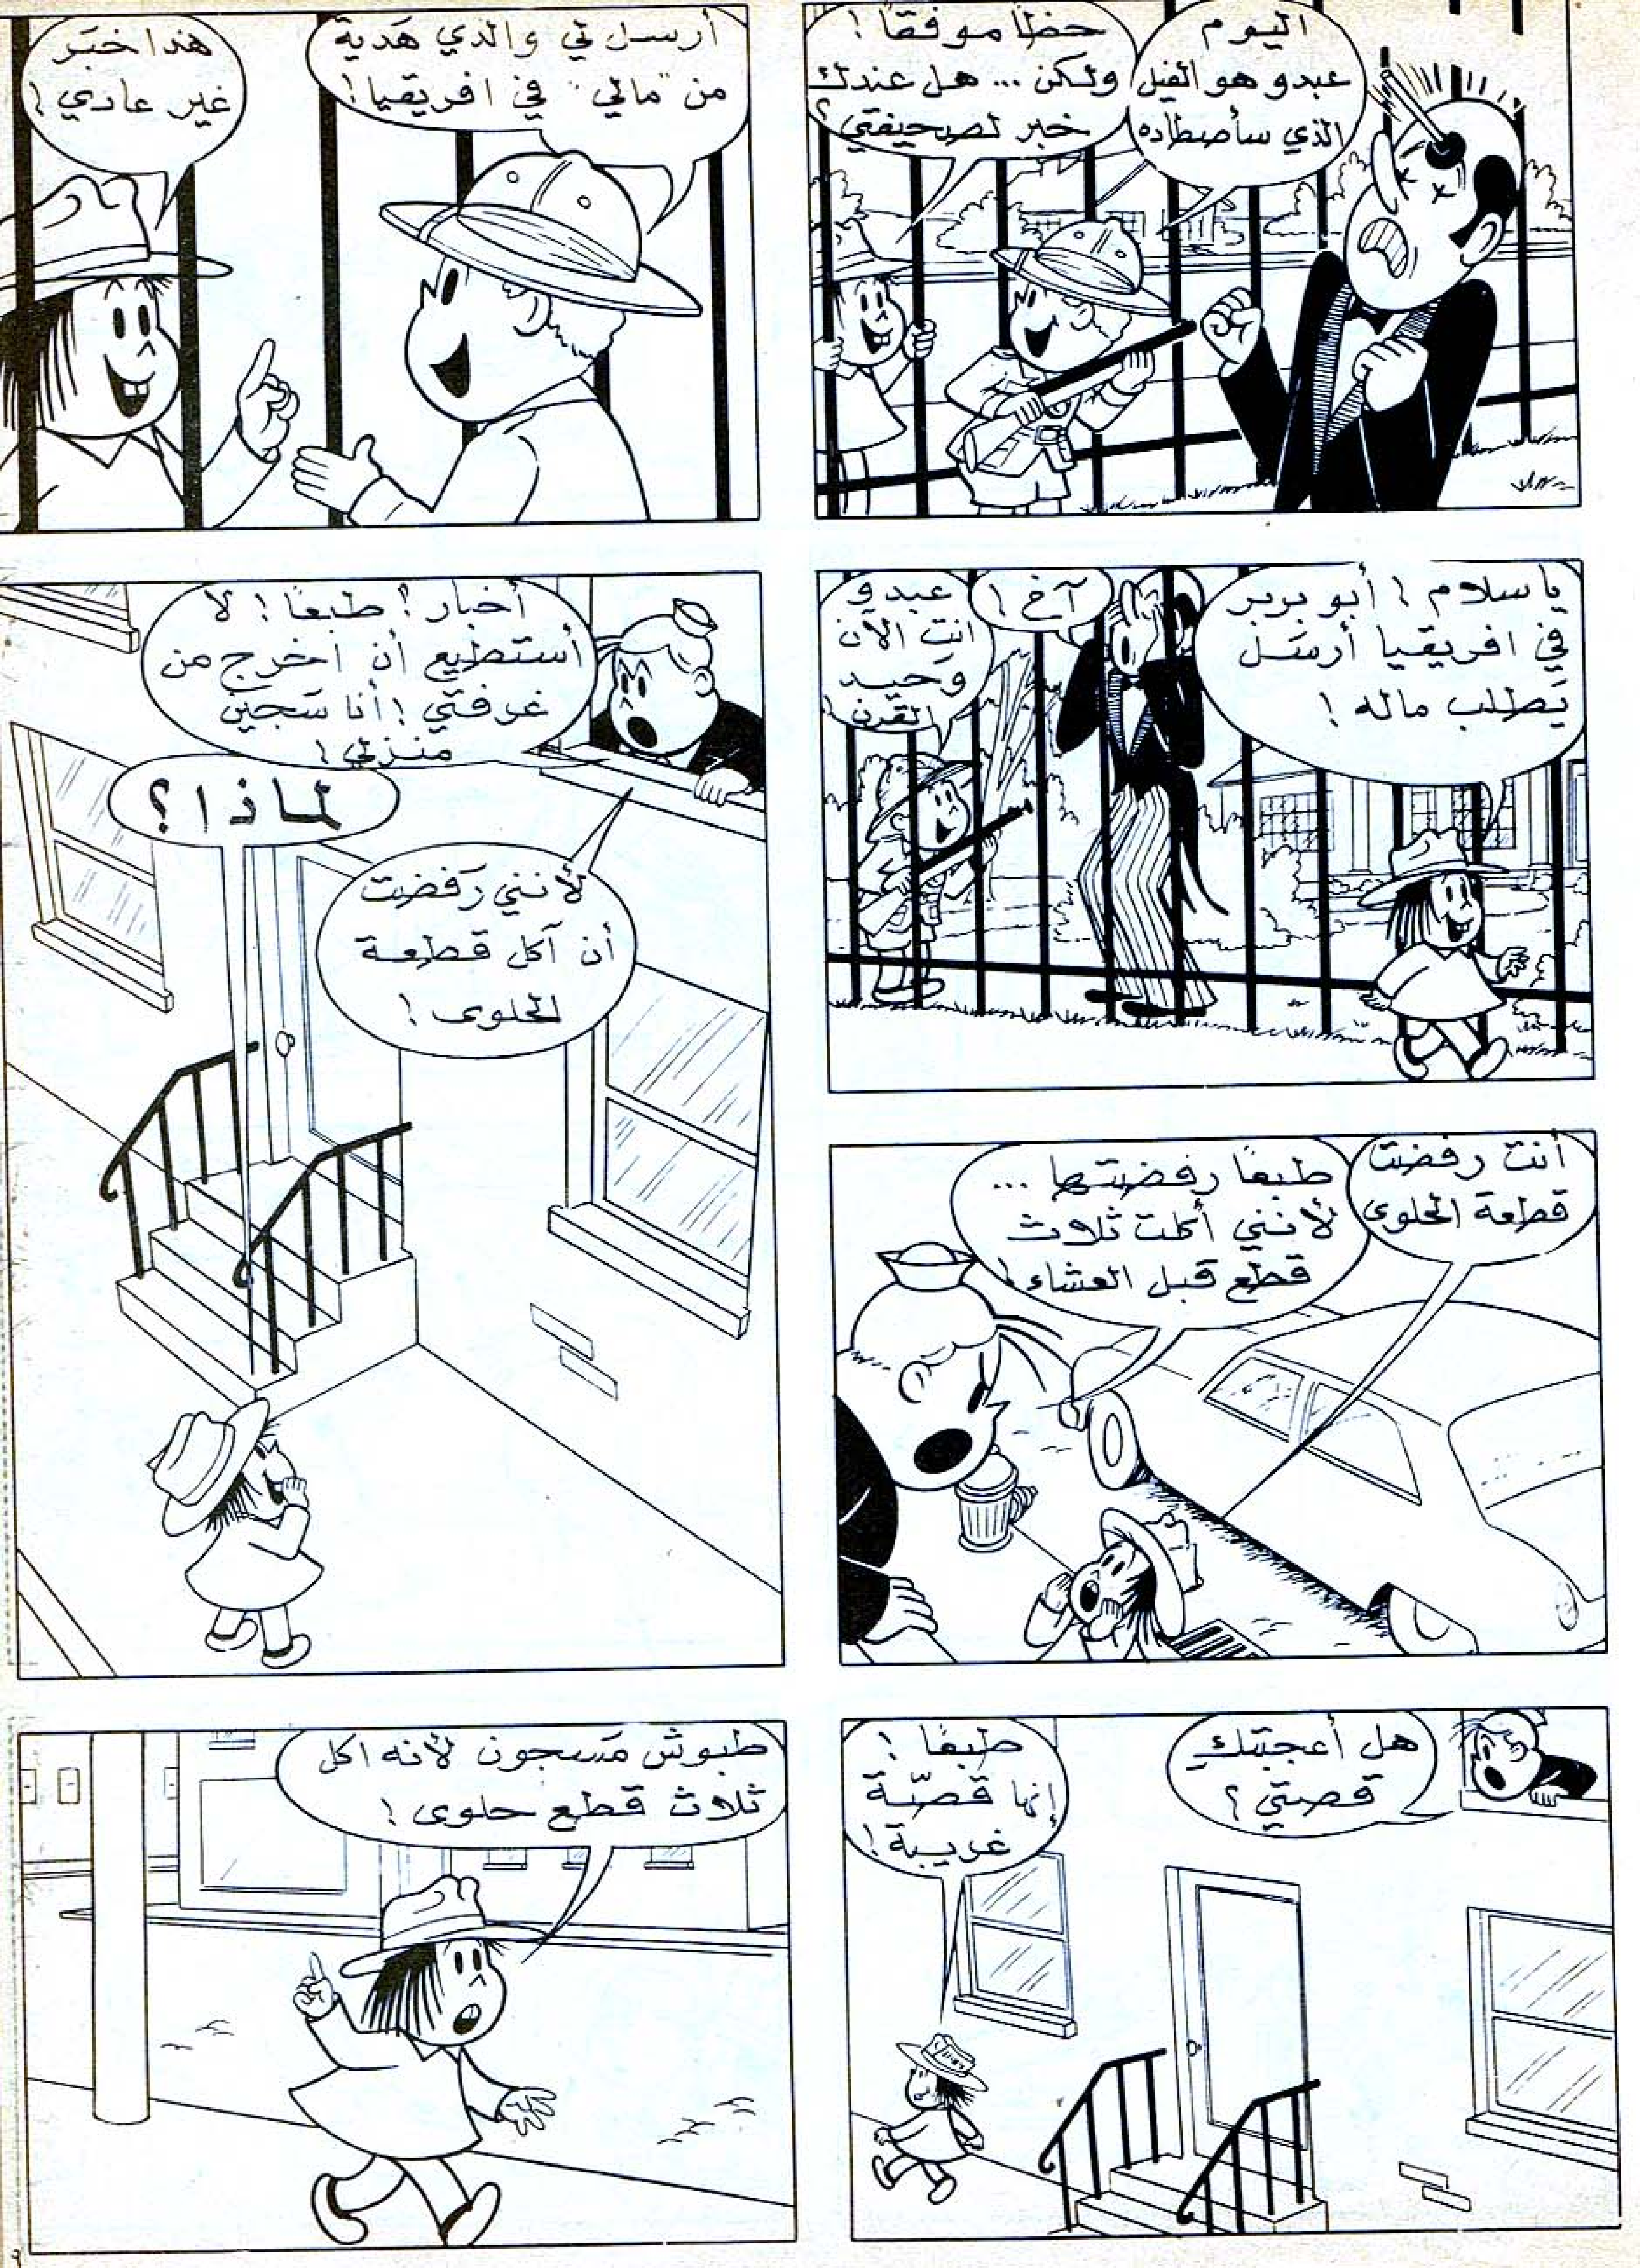 اليوم
عبدو هو الفيل
الذي سأصطاده
حظا موفقا !
ولكن ... هل عندك
خبر لصحيفتي ؟
أرسل لي والدي هدية
من "مالي" في افريقيا !
هذا خبر
غير عادي !
يا سلام ! أبو بربر
في افريقيا أرسل
يطلب ماله !
آخ !
عبدو
انت الآن
وحيد
القرن !
أخبار ؟ طبعا ! لا
أستطيع أن اخرج من
غرفتي ! أنا سجين
منزلي !
لماذا ؟
لأنني رفضت
أن آكل قطعة
الحلوى !
أنت رفضت
قطعة الحلوى
طبعا رفضتها ...
لأنني أكلت ثلاث
قطع قبل العشاء !
هل أعجبتك
قصتي ؟
طبعا !
إنها قصّة
غريبة !
طبوش مسجون لأنه اكل
ثلاث قطع حلوى !